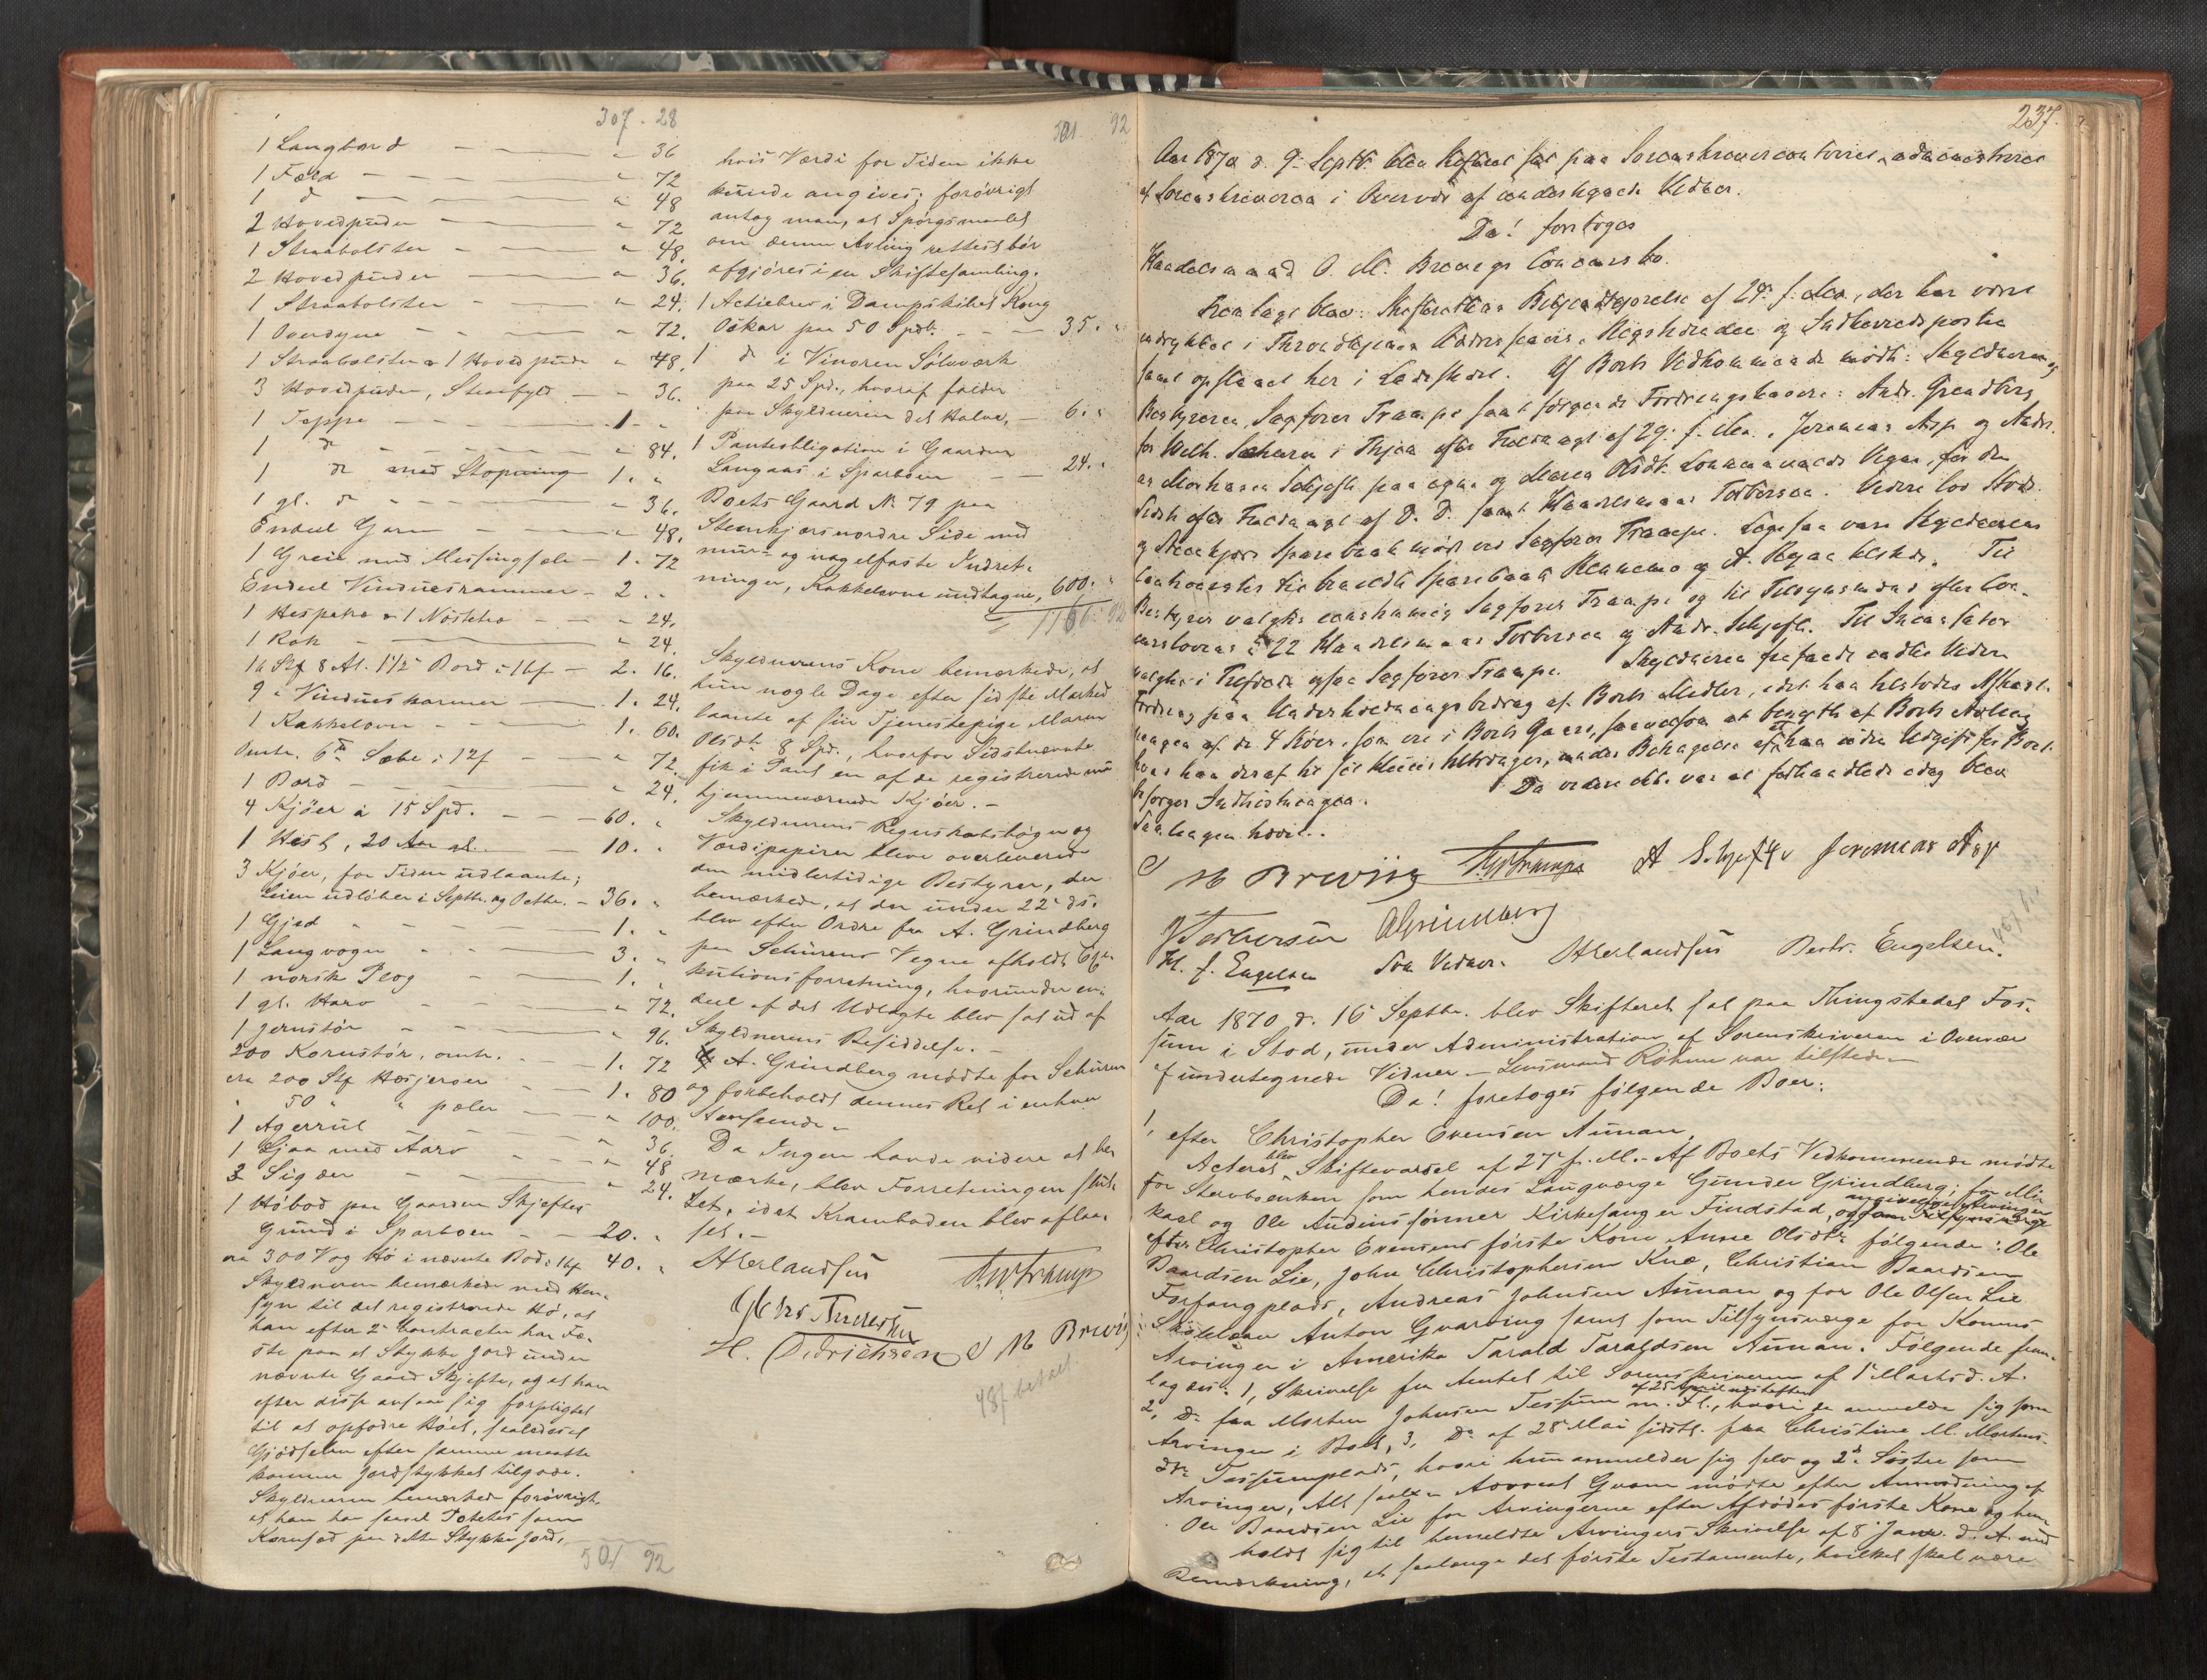 307 - 28
1 Langbord — " 36
1 Fæld — " 72
1 d — " 48
2 Hovedpuder — " 72
1 Straabolster — " 48.
2 Hovedpuder — " 36.
1 Straabolster — " 24.
1 Overdyne — " 72.
1 Straabolster & 1 Hovedpude " 48.
3 Hovedpuder, — " 36.
1 Teppe — 1. "
1 do — " 84.
1 do med Stopning 1. "
1 gl. do — " 36.
Endeel Garn — " 48.
1 Greie med Messingsæle — 1. 72
Endeel Vinduesrammer — 2. "
1 Hespetræ & 1 Nøstetræ — " 24.
1 Rok — " 24.
16 Stk 8 Al. 1½" Bord — 2. 16.
9 Vindueskarmer — 1. 24.
1 Kakkelovn — 1. 60.
Omtr. 6 Sæbe 12 — " 72.
1 Bord — " 24.
4 Kjöer à 15 Spd. — 60. "
1 Hest, 20 Aar — 10. "
3 Kjöer, for Tiden udlaante;
Leien udlöber i Septbr. og Octbr. — 36. "
1 Gjed — 1. "
1 Langvogn — 3. "
1 norsk Plog — 1. "
1 gl. Harv — " 72.
1 Jernstör — " 96.
200 Kornstör, omtr. — 1. 72
200 Stk Hesjer — 1. 80
" 50 " pæler — " 100.
1 Agerriil — " 36.
1 Ljaa med Aarv — " 48
3 Sigder — " 24.
1 Höbod paa Gaarden Skjeftes
Grund i Sparboen — 20. "
300 Vog Hö i nævnte Bod — 40. "
Skyldneren bemærkede med Hen-
syn til det registrerede Hö, at
han efter 2 Contracter har Fæ-
ste paa et Stykke Jord under
nævnte Gaard Skjefte, og at han
efter disse ansaa sig forpligtet
til at opfodre Höet, saaledes at
Gjödselen efter samme maatte
komme Jordstykket tilgode.
Skyldneren bemærkede forövrigt,
at han har saaet Potetes samt
Kornsæd paa dette Stykke Jord,
501 92
501 92
hvis Værdi for Tiden ikke
kunde angives; forövrigt
antog man, at Spörgsmaalet
om denne Avling rettest bör
afgjöres i en Skiftesamling.
1 Actiebrev i Dampskibet Kong
Oskar paa 50 Spd. — 35. "
1 do i Vinoren Sölværk
paa 25 Spd., hvoraf falder
paa Skyldneren det Halve, — 6. "
1 Panteobligation i Gaarden
Langaas i Sparboen — 24. "
Boets Gaard No 79 paa
Steinkjærs nordre Side med
muur- og nagelfaste Indret-
ninger, Kakkelovne undtagne, 600. "
1166. 92
Skyldnerens Kone bemærkede, at
hun nogle Dage efter sidste Marked
laante af sin Tjenestepige Maren
Olsdtr 8 Spd., hvorfor Sidstnævnte
fik i Pant en af de registrerede nu
hjemmeværende Kjöer. —
Skyldnerens Regnskabsböger og
Værdipapirer bleve overleverede
den midlertidige Bestyrer, der
bemærkede, at der under 22de ds.
blev efter Ordre fra A. Grindberg
paa Schürens Vegne afholdt Exe-
kutionsforretning, hvorunder en
deel af det Udlagte blev sat ud af
Skyldnerens Besiddelse. —
A. Grindberg mödte for Schüren
og forbeholdt dennes Ret i enhver
Henseende. —
Da Ingen havde videre at be-
mærke, blev Forretningen slut-
tet, idet Kramboden blev aflaa-
set. —
H. Didrichsen O M Brevig
48 betalt
237.
Aar 1870 d. 9 Septbr. blev Skifteret sat paa Sorenskrivercontoiret, administreret
af Sorenskriveren i Overvær af undertegnede Vidner.
Da! foretoges
Handelsmand O. M. Brevigs Concursbo.
Fremlagt blev: Skifterettens Bekjendtgjørelse af 24 f. Md., der har været
indrykket i Throndhjems Adresseavis, og Indherredsposten
samt opslaaet her i Ladestedet. Af Boets Vedkommende mødte: Skyldneren og
Bestyreren, Sagförer Trampe samt følgende Fordringshavere: Andr. Grindberg
for Wilh. Schüren i efter Fuldmagt af 29 f. Md., Jeremias Asp og Andr.
Skjefte paa egne og Maren Olsdtr. Vegne, for den
sidste efter Fuldmagt af D. D. samt Handelsmand Torbersen. Videre lod
Steenkjærs Sparebank møde ved Sagförer Trampe. Ligesaa vare Skyldnerens
og tilstede. Til
Bestyrer valgtes eenstemmig Sagförer Trampe og til Tilsynsmænd efter Con-
curslovens § 22 Handelsmand Torbersen og Andr. Skjefte. Til Incassator
valgtes i Tilfælde ogsaa Sagförer Trampe. Skyldneren frafaldt indtil Videre
Fordring paa Underholdningsbidrag af Boets Midler, idet han tilstodes
af de 4 Köer, som ere i Boets at benytte af Boets Avling
hvad han deraf til sit Huus tiltrænger, mod at han uden Udgift for Boet
besørger Indhøstningen. Da videre ikke var at forhandle idag blev
Samlingen hævet.
O M Brevig A Skjefte Jeremias Asp
Torbersen AGrindberg
H. J. Engelsen Som Vidner. Bertr. Engelsen.
Aar 1870 d. 16 Septbr. blev Skifteret sat paa Thingstedet Fos-
sum i Stod, under Administration af Sorenskriveren i Overvær
af undertegnede Vidner. — Lensmand var tilstede —
Da! foretoges følgende Boer:
1, efter Christopher Evensen Aunan.
Acteret blev Skiftevarsel af 27de f. M. — Af Boets Vedkommende mödte
for Stervboenken som hendes Laugværge Gunder Grindberg; for Mi-
kael og Ole Audenssönner Kirkesanger Findstad,
efter Christopher Evensens förste Kone Anne Olsdtr følgende: Ole
Baardsen Lie, John Christophersen Kne, Christian Baardsen
Forfangplads, Andreas Johnsen Aunan og for Ole Olsen Lie
Anton Qvarving samt som Tilsynsværge for Konens
Arvinger i Amerika Tarald Taraldsen Aunan. Følgende frem-
lagdes: 1, Skrivelse fra Amtet til Sorenskriveren af 1 Marts d. A.
2, Do fra Morten Johnsen Tessum m. Fl., af 25 April næstefter hvori de anmelde sig som
Arvinger i Boet, 3, Do af 28 Mai sidstl. fra Christine M. Mortens-
dtr Tessumplads, hvori hun anmelder sig selv og 2de Söstre som
Arvinger, Advocat Qvam mödte efter Anmodning af
Ole Baardsen Lie for Arvingerne efter Afdödes förste Kone og hen-
holdt sig til bemeldte Arvingers Skrivelse af 8 Janr. d. A. med
Bemærkning, at saalænge det förste Testamente, hvilket skal være